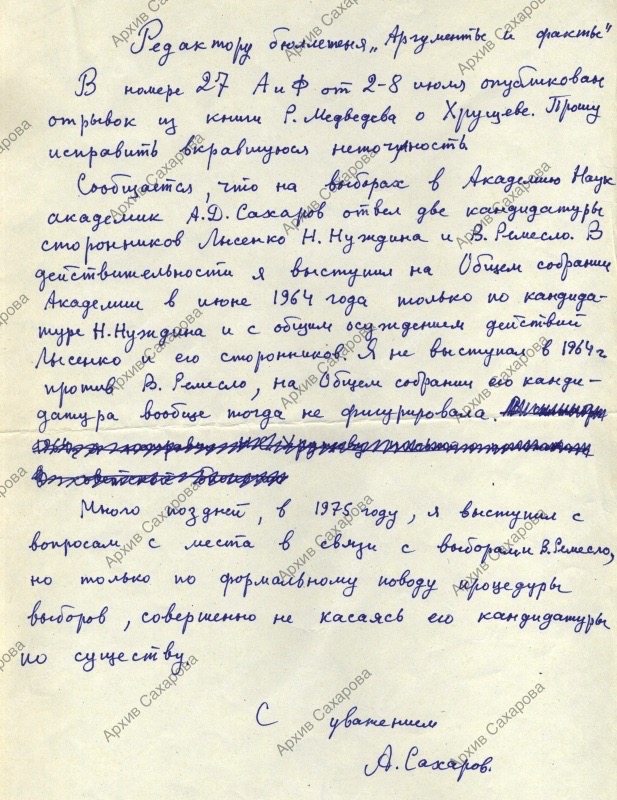 Редактору бюллетеня „Аргументы и факты"
В номере 27 АиФ от 2-8 июля опубликован
отрывок из книги Р. Медведева о Хрущеве. Прошу
исправить вкравшуюся неточность
Сообщается, что на выборах в Академию Наук
академик А.Д. Сахаров отвел две кандидатуры
сторонников Лысенко Н. Нуждина и В. Ремесло. В
действительности я выступил на Общем собрании
Академии в июне 1964 года только по кандида-
туре Н. Нуждина и с общим осуждением действий
Лысенко и его сторонников. Я не выступал в 1964 г
против В. Ремесло, на Общем собрании его канди-
датура вообще тогда не фигурировала.
Много поздней, в 1975 году, я выступил с
вопросам с места в связи с выборами В. Ремесло,
но только по формальному поводу процедуры
выборов, совершенно не касаясь его кандидатуры
по существу.
С уважением
А. Сахаров.
Архив Сахарова